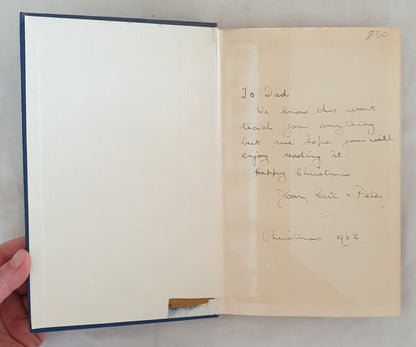 830
To Dad
We know this wont
teach you anything
but we hope you will
enjoy reading it.
Happy Christmas
Joan, Eric + Peter.
Christmas 1962.